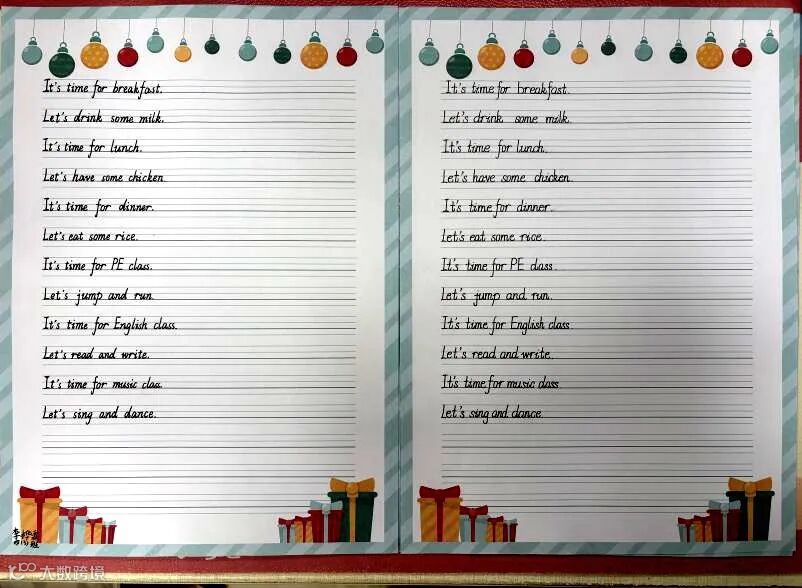 It's time for breakfast.
Let's drink some milk.
It's time for lunch.
Let's have some chicken.
It's time for dinner.
Let's eat some rice.
It's time for PE class.
Let's jump and run.
It's time for English class.
Let's read and write.
It's time for music claa.
Let's sing and dance.
It's time for breakfast.
Let's drink some milk.
It's time for lunch.
Let's have some chicken.
It's time for dinner.
Let's eat some rice.
It's time for PE class.
Let's jump and run.
It's time for English class
Let's read and write.
It's time for music class.
Let's sing and dance.
大数跨境